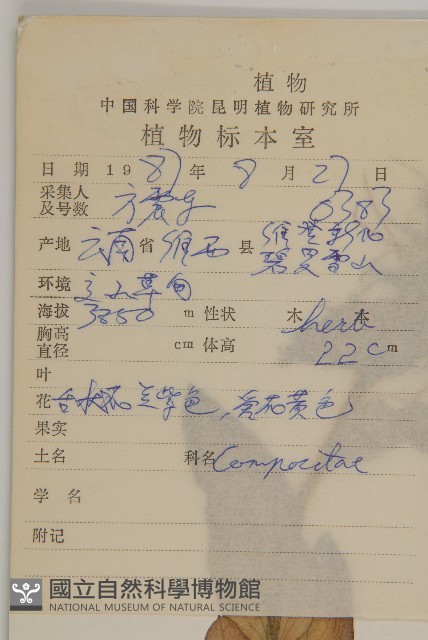 植物
中国科学院昆明植物研究所
植物标本室
日期 1987年8月27日
采集人及号数 方震东 6383
产地 云南省维西县 维登新化
碧罗雪山
环境 草甸
海拔 3850 m 性状 木 本 herb
胸高直径 cm 体高 22cm
叶
花 舌状花兰紫色,管花黄色
果实
土名 科名 Compositae
学名
附记
國立自然科學博物館
NATIONAL MUSEUM OF NATURAL SCIENCE